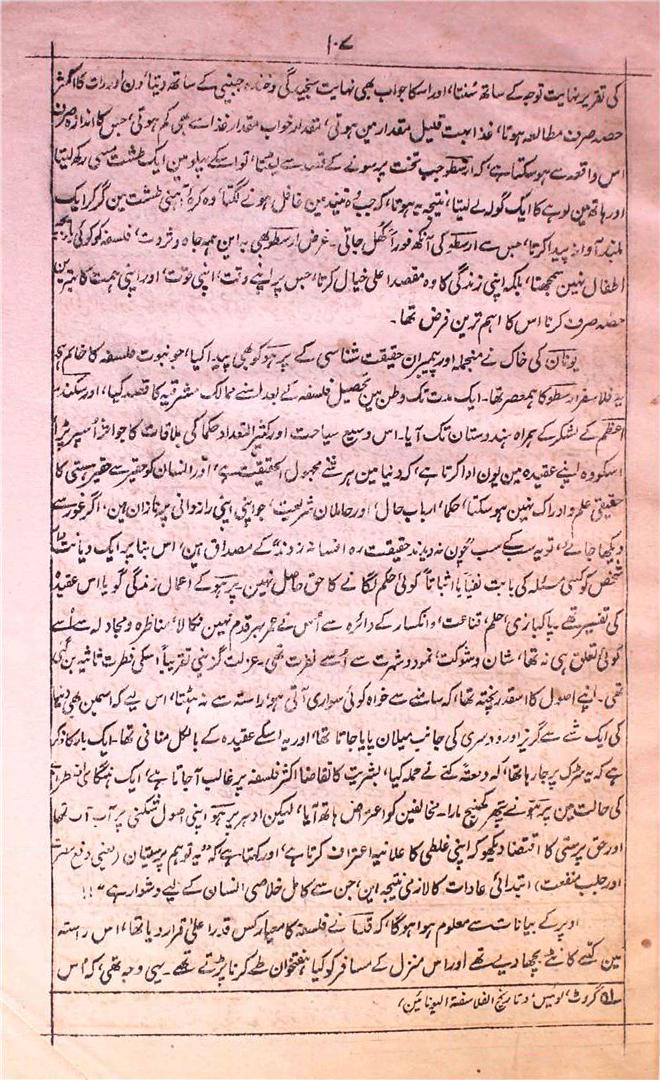 ۱۰۷
کی تقریر نہایت توجہ کے ساتھ سُنتا، اور اسکا جواب بھی نہایت سنجیدگی و خندہ جبینی کے ساتھ دیتا، دن اور رات کا اکثر
حصہ صرف مطالعہ ہوتا، غذا بہت قلیل مقدار مین ہوتی، مقدار خواب مقدار غذا سے بھی کم ہوتی، جس کا اندازہ صرف
اس واقعہ سے ہوسکتا ہے، کہ ارسطو جب تخت پر سونے کے قصد سے لیٹتا، تو اسکے پہلو مین ایک طشت مسی رکھ لیتا
اور ہاتھ مین لوہے کا ایک گولہ لے لیتا، نتیجہ یہ ہوتا، کہ جب وہ نیند مین غافل ہونے لگتا، وہ کرۂ آہنی طشت مین گر کر ایک
بلند آواز پیدا کرتا، جس سے ارسطو کی آنکھ فوراً کُھل جاتی۔ غرض ارسطو بھی بہ این ہمہ جاہ و ثروت، فلسفہ کو کوئی بازیچۂ
اطفال نہین سمجھتا، بلکہ اپنی زندگی کا وہ مقصد اعلیٰ خیال کرتا، جس پر اپنے وقت، اپنی قوت، اور اپنی ہمت کا بہترین
حصہ صرف کرنا اس کا اہم ترین فرض تھا۔
یونان کی خاک نے منجملہ اور پیمبران حقیقت شناسی کے پرہو کو بھی پیدا کیا، جو نبوت فلسفہ کا خاتم ہے
یہ فلاسفر ارسطو کا ہمعصر تھا۔ ایک مدت تک وطن مین تحصیل فلسفہ کے بعد اسنے ممالک مشرقیہ کا قصد کیا، اور سکندر
اعظم کے لشکر کے ہمراہ ہندوستان تک آیا۔ اس وسیع سیاحت اور کثیر التعداد حکما کی ملاقات کا جو اثر اُسپر پڑا
اسکو وہ اپنے عقیدہ مین یون ادا کرتا ہے، کہ دنیا مین ہر شئے مجہول الحقیقت ہے، اور انسان کو حقیر سے حقیر ہستی کا
حقیقی علم و ادراک نہین ہوسکتا، حکما، ارباب حال، اور حاملان شریعت، جو اپنی اپنی رازدانی پر نازان ہین، اگر غور سے
دیکھا جائے، تو یہ سب کے سب "چون نہ دیدند حقیقت رہ افسانہ زدند" کے مصداق ہین، اس بنا پر ایک دیانت دار
شخص کو کسی مسئلہ کی بابت نفیاً یا اثباتاً کوئی حکم لگانے کا حق حاصل نہین۔ پرہو کے اعمال زندگی گویا اس عقیدہ
کی تفسیر تھے۔ پاکبازی، حلم، قناعت، و انکسار کے دائرہ سے اُس نے عمر بھر قدم نہین نکالا، مناظرہ و مجادلہ سے اُسے
کوئی تعلق ہی نہ تھا، شان و شوکت، نمود و شہرت سے اُسے نفرت تھی۔ عزلت گزینی تقریباً اسکی فطرت ثانیہ بن گئی
تھی۔ اپنے اصول کا اسقدر پختہ تھا، کہ سامنے سے خواہ کوئی سواری آتی ہو، راستہ سے نہ ہٹتا، اس لیے کہ اسمین بھی دنیا
کی ایک شے سے گریز اور دوسری کی جانب میلان پایا جاتا تھا، اور یہ اسکے عقیدہ کے بالکل منافی تھا۔ ایک بار کا ذکر
ہے کہ یہ سڑک پر جا رہا تھا، کہ دفعتہً کتے نے حملہ کیا، بشریت کا تقاضا اکثر فلسفہ پر غالب آجاتا ہے، ایک ہنگامی اضطرار
کی حالت مین پرہو نے پتھر کھینچ مارا۔ مخالفین کو اعتراض ہاتھ آیا، لیکن ادہر پرہو اپنی اصول شکنی پر آب آب تھا
اور حق پرستی کا اقتضا دیکھو کہ اپنی غلطی کا علانیہ اعتراف کرتا ہے، اور کہتا ہے، کہ "یہ توہم پرستیان (یعنی دفع مضرت
اور جلب منفعت) ابتدائی عادات کا لازمی نتیجہ ہین، جن سے کامل خلاصی انسان کے لیے دشوار ہے"!!
اوپر کے بیانات سے معلوم ہوا ہوگا، کہ قدما نے فلسفہ کا معیار کس قدر اعلیٰ قرار دیا تھا، اس راستہ
مین کتنے کانٹے بچھا دیے تھے اور اس منزل کے مسافر کو کیا ہفتخوان طے کرنا پڑتے تھے۔ یہی وجہ تھی، کہ اُس
گروٹ، لوئیس، و تاریخ الفلاسفۃ الیونانین،